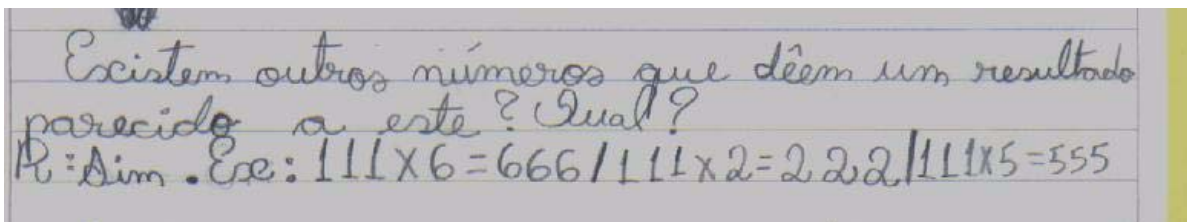 Existem outros números que dêem um resultado
parecido a este? Qual?
R: Sim. Exe: 111x6=666/111x2=222/111x5=555